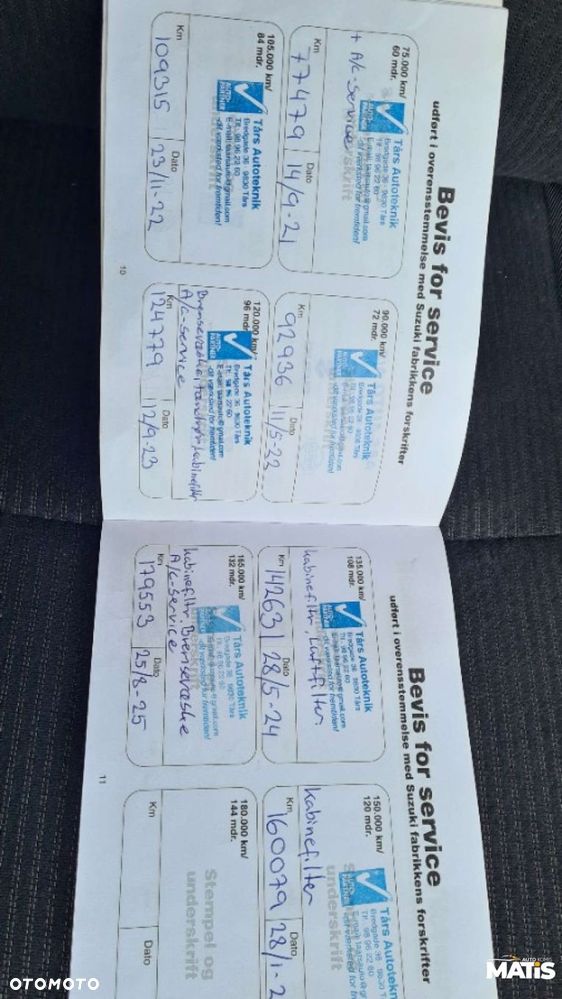 Bevis for service
udført i overensstemmelse med Suzuki fabrikkens forskrifter
75.000 km/
60 mdr.
Tårs Autoteknik
Bredgade 36 · 9830 Tårs
Tlf. 98 96 22 60
E-mail: taarsauto@gmail.com
-dit værksted for fremtiden!
+ A/c-service
Km
77479
Dato
14/9-21
90.000 km/
72 mdr.
AUTO
PARTNER
Tårs Autoteknik
Bredgade 36 · 9830 Tårs
Tlf. 98 96 22 60
-dit værksted for fremtiden!
Km
92936
Dato
11/5-22
105.000 km/
84 mdr.
AUTO
PARTNER
Tårs Autoteknik
Bredgade 36 · 9830 Tårs
Tlf. 98 96 22 60
E-mail: taarsauto@gmail.com
-dit værksted for fremtiden!
Km
109315
Dato
23/11-22
120.000 km/
96 mdr.
AUTO
PARTNER
Tårs Autoteknik
Bredgade 36 · 9830 Tårs
Tlf. 98 96 22 60
E-mail: taarsauto@gmail.com
-dit værksted for fremtiden!
A/C-service
Km
124779
Dato
12/9-23
10
Bevis for service
udført i overensstemmelse med Suzuki fabrikkens forskrifter
135.000 km/
108 mdr.
Tårs Autoteknik
Bredgade 36 · 9830 Tårs
Tlf. 98 96 22 60
E-mail: taarsauto@gmail.com
-dit værksted for fremtiden!
kabinefiltr, Luftfilter
Km
142631
Dato
28/5-24
150.000 km/
120 mdr.
Tårs Autoteknik
Bredgade 36 · 9830 Tårs
Tlf. 98 96 22 60
kabinefilter
Km
160079
Dato
28/1-2
165.000 km/
132 mdr.
Tårs Autoteknik
Bredgade 36 · 9830 Tårs
Tlf. 98 96 22 60
-dit værksted for fremtiden!
kabinefiltr. Bremsevæske
A/c-service
Km
179553
Dato
25/8-25
180.000 km/
144 mdr.
Stempel og
underskrift
Km
Dato
11
OTOMOTO
AUTO KOMIS
MATIS